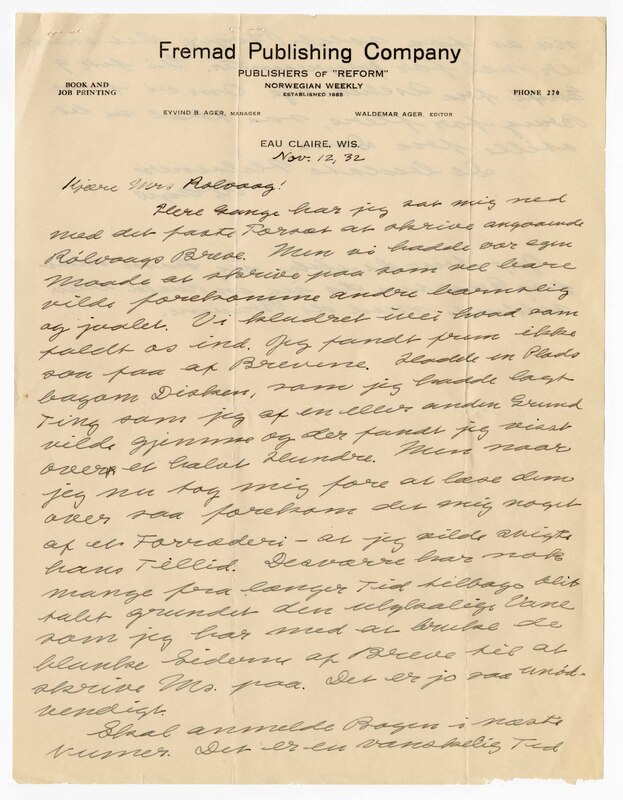 Fremad Publishing Company
PUBLISHERS OF "REFORM"
NORWEGIAN WEEKLY
ESTABLISHED 1885
BOOK AND
JOB PRINTING
PHONE 270
EYVIND B. AGER, MANAGER
WALDEMAR AGER, EDITOR
EAU CLAIRE, WIS.
Nov. 12, 32
Kjære Mrs Rölvaag!
Flere Gange har jeg sat mig ned
med det faste Forsæt at skrive angaaende
Rölvaags Breve. Men vi hadde vor egen
Maade at skrive paa som vel bare
vilde forekomme andre barnslig
og jaalet. Vi sludret ivei hvad som
faldt os ind. Jeg fandt frem ikke
saa faa af Brevene. Hadde en Plads
bagom Disken, som jeg hadde lagt
Ting som jeg af en eller anden Grund
vilde gjemme og der fandt jeg visst
over et halvt Hundre. Men naar
jeg nu tog mig fore at læse dem
over saa forekom det mig noget
af et Forræderi – at jeg vilde svigte
hans Tillid. Desværre har nok
mange fra længer Tid tilbage blit
tabt grundet den ulyksalige Vane
som jeg har med at bruke de
blanke Siderne af Breve til at
skrive Ms. paa. Det er jo saa unød-
vendigt.
Skal anmelde Bogen i næste
Numer. Det er en vanskelig Tid